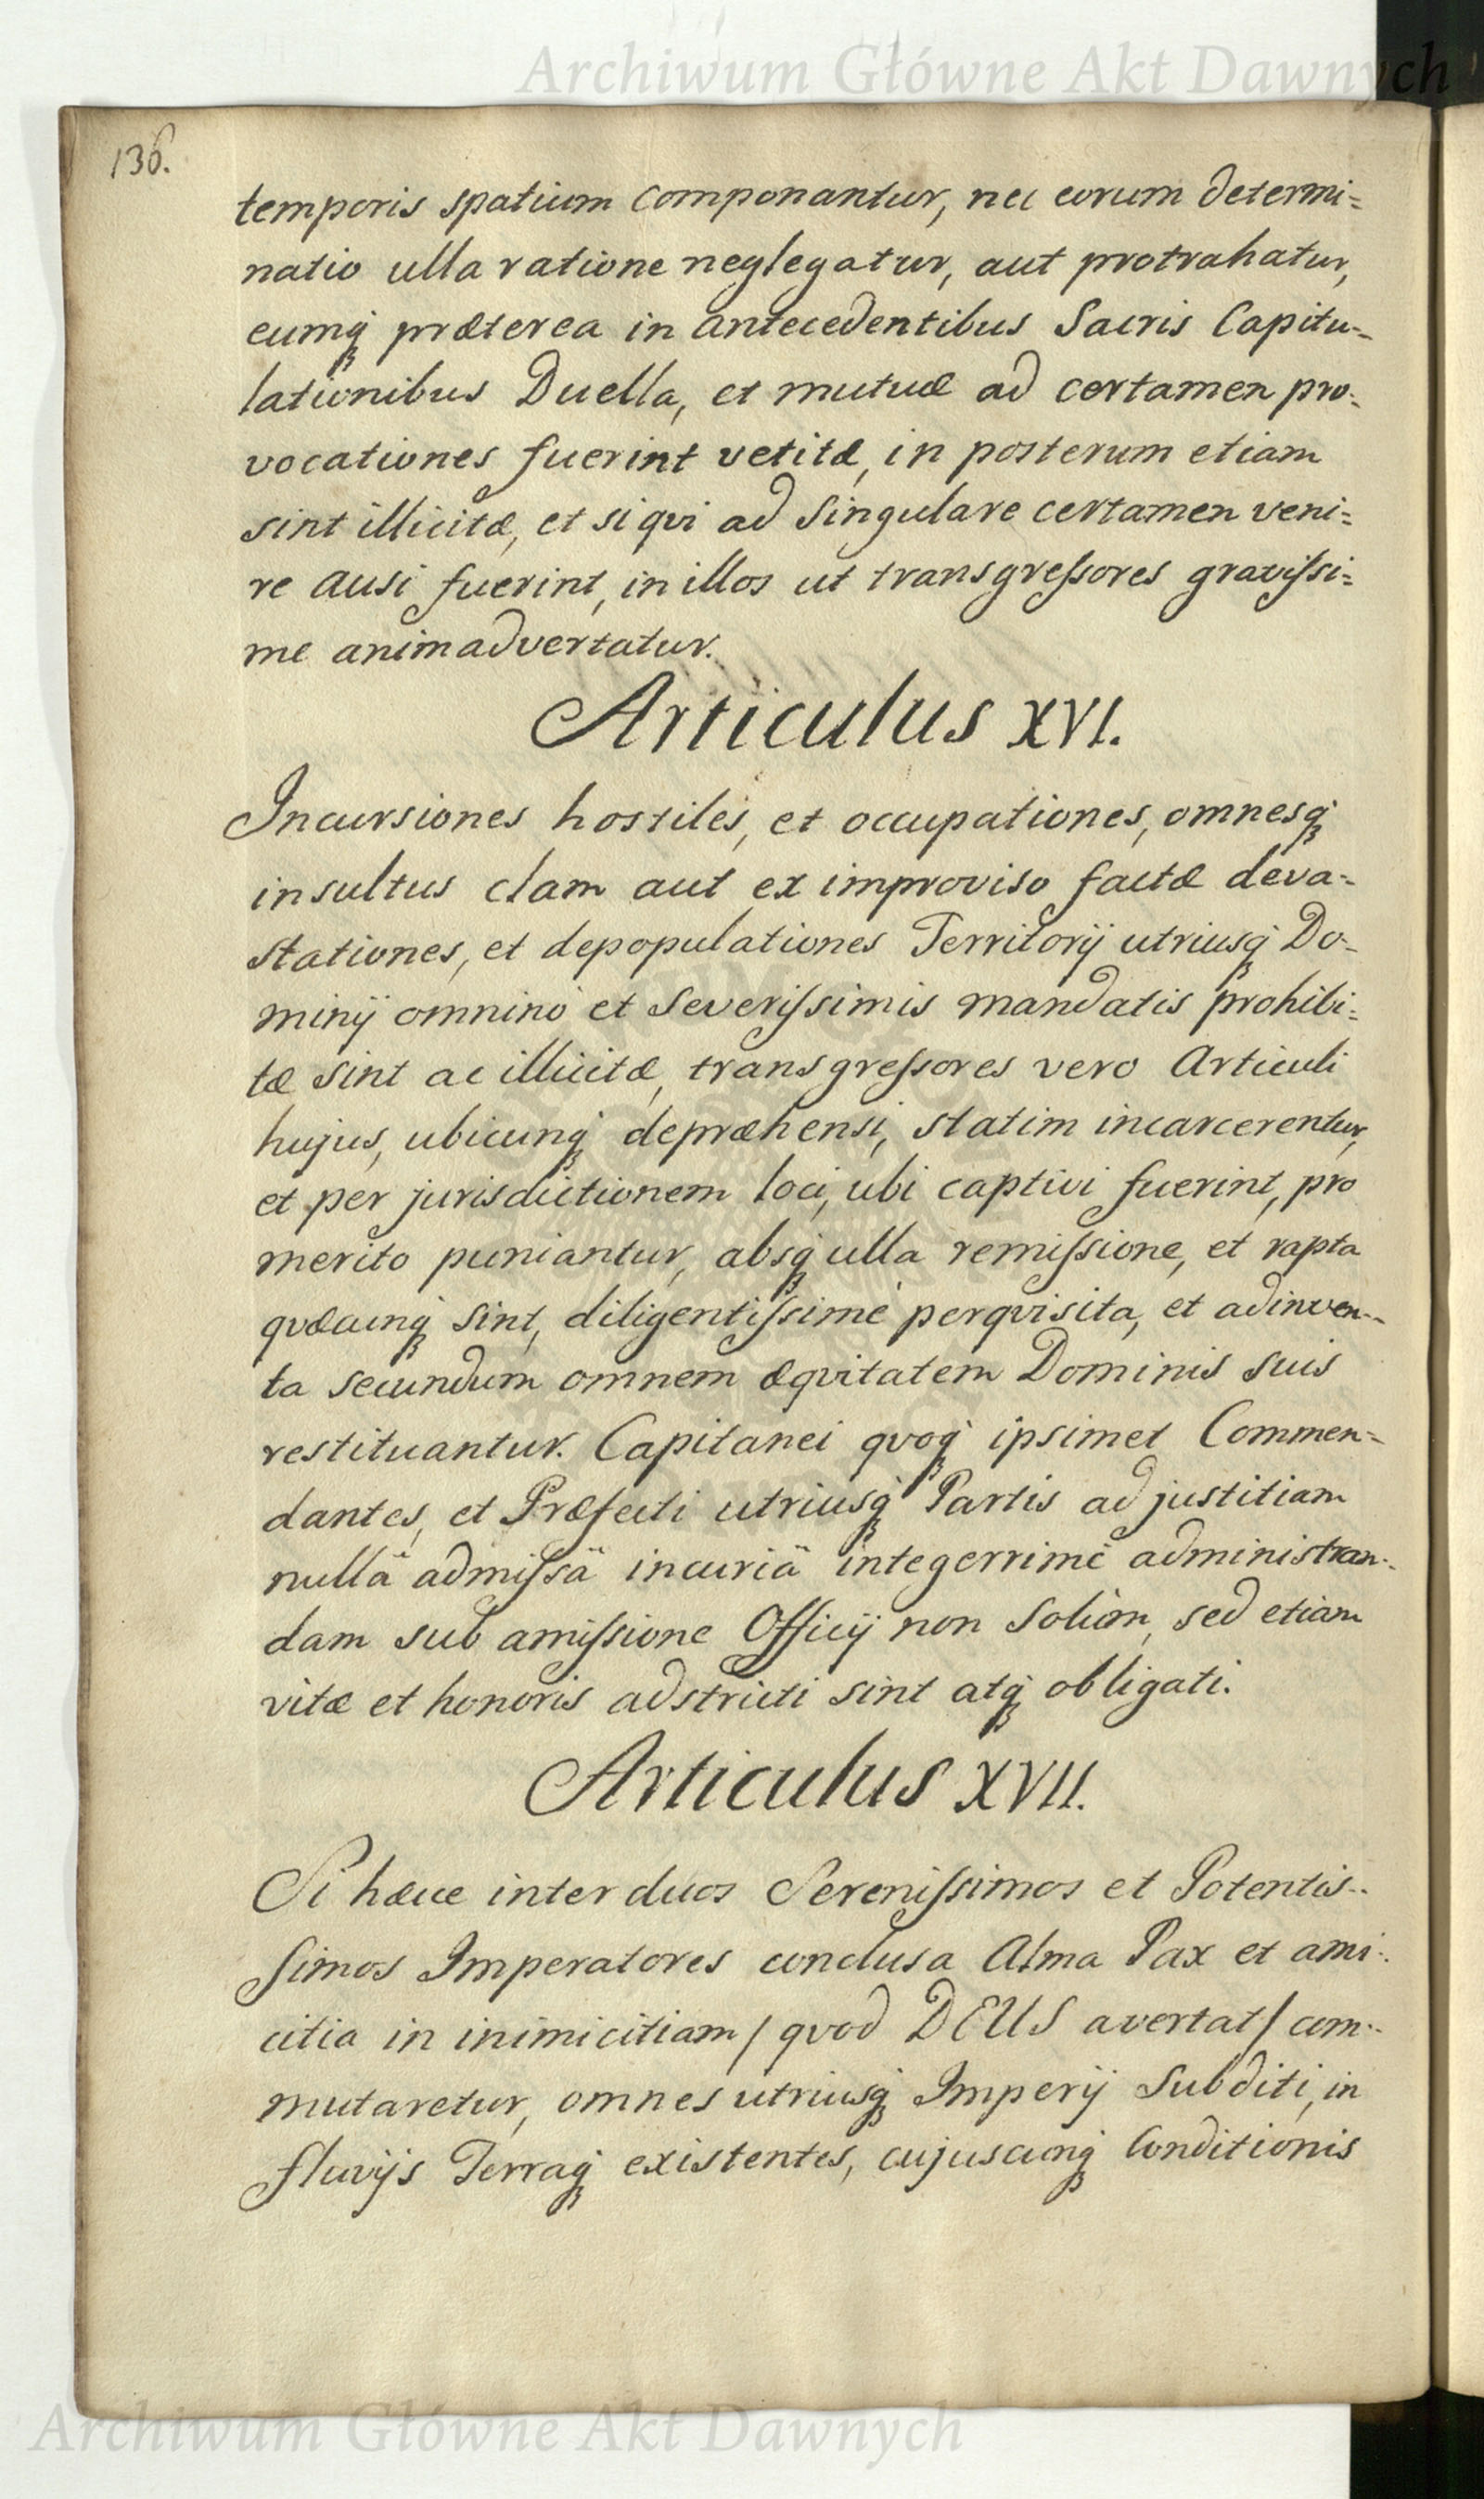 Archiwum Główne Akt Dawnych
136.
temporis spatium componantur, nec eorum determi=
natio ulla ratione neglegatur, aut protrahatur,
cumq́ præterea in antecedentibus Sacris Capitu=
lationibus Duella, et mutuæ ad certamen pro=
vocationes fuerint vetitæ, in posterum etiam
sint illicitæ, et siqui ad Singulare certamen veni=
re ausi fuerint, in illos ut transgreſsores graviſsi=
me animadvertatur.
Articulus XVI.
Incursiones hostiles, et occupationes, omnesq́
insultus clam aut ex improviso factæ deva=
stationes, et depopulationes Territorij utriusq́ Do=
minij omnino et Severiſsimis mandatis prohibi=
tæ sint ac illicitæ, transgreſsores vero Articuli
hujus, ubicunq́ depræhensi, statim incarcerentur,
et per jurisdictionem loci, ubi captivi fuerint, pro
merito puniantur, absq́ ulla remiſsione, et rapta
quæcunq́ sint, diligentiſsimè perquisita, et adinven=
ta secundum omnem æquitatem Dominis suis
restituantur. Capitanei quoq́ ipsimet Commen=
dantes, et Præfecti utriusq́ Partis ad justitiam
nullâ admiſsâ incuriâ integerrimè administran=
dam sub amiſsione Officij non Solùm, sed etiam
vitæ et honoris adstricti sint atq́ obligati.
Articulus XVII.
Si hæcce inter duos Sereniſsimos et Potentis=
simos Imperatores conclusa Alma Pax et ami=
citia in inimicitiam / quod DEUS avertat / com=
mutaretur, omnes utriusq́ Imperij Subditi, in
fluvijs Terraq́ existentes, cujuscunq́ Conditionis
Archiwum Główne Akt Dawnych